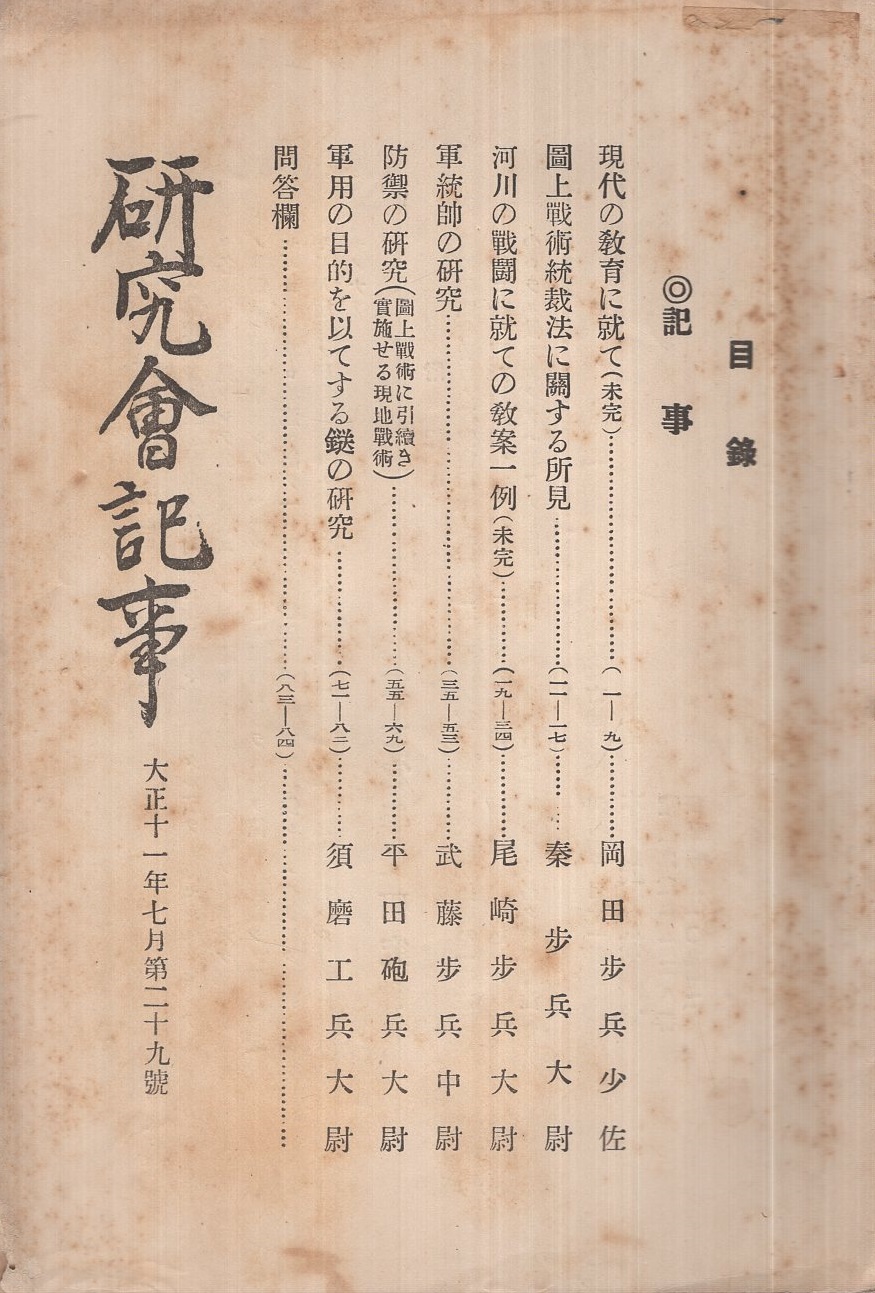 目錄
◎記事
現代の敎育に就て(未完)…………(一—九)…………岡田步兵少佐
圖上戰術統裁法に關する所見…………(一一—一七)…………秦步兵大尉
河川の戰鬪に就ての敎案一例(未完)…………(一九—三四)…………尾崎步兵大尉
軍統帥の硏究…………(三五—五三)…………武藤步兵中尉
防禦の硏究(圖上戰術に引續き實施せる現地戰術)…………(五五—六九)…………平田砲兵大尉
軍用の目的を以てするの硏究…………(七一—八二)…………須磨工兵大尉
問答欄…………(八三—八四)…………
硏究會記事
大正十一年七月第二十九號